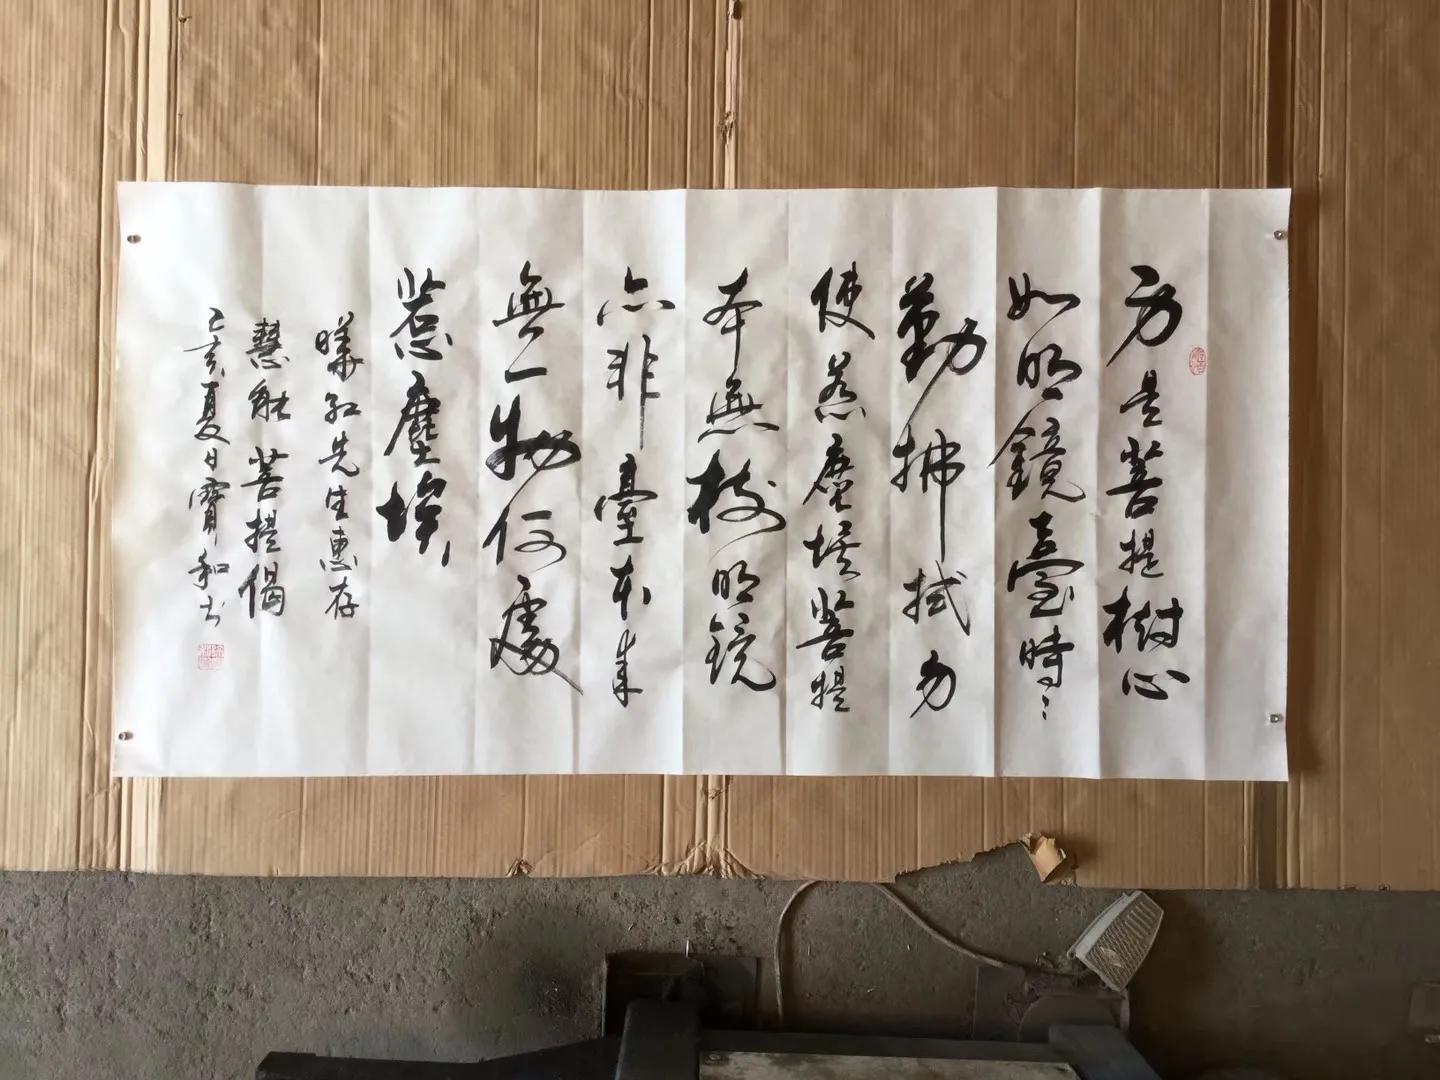 身是菩提樹心
如明鏡臺時〻
勤拂拭勿
使惹塵埃菩提
本無樹明鏡
亦非臺本来
無一物何處
惹塵埃
先生惠存
慧能菩提偈
己亥夏日寶和书